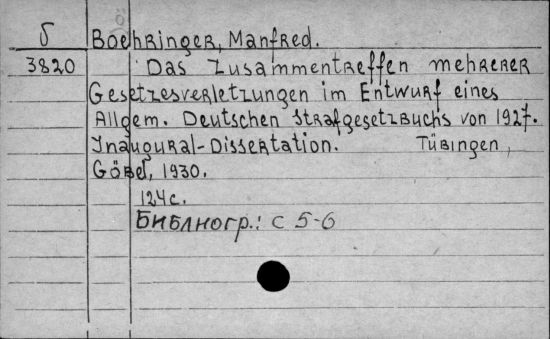 5 Boehringer, Manfred.
3820 Das Zusammentreffen mehrerer
Gesetzesverletzungen im Entwurf eines
Allgem. Deutschen Strafgesetzbuchs von 1927.
Inaugural-Dissertation. Tübingen,
Göbel, 1930.
124 с.
Библиогр.: с 5-6